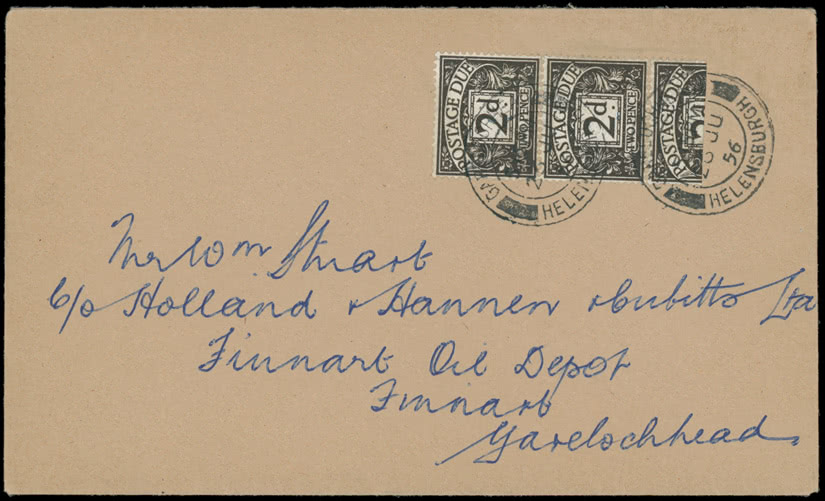 POSTAGE DUE 2d TWO PENCE
POSTAGE DUE 2d TWO PENCE
POSTAGE
HELENSBURGH
JU
56
Mr Wm Stuart
c/o Holland & Hannen & Cubitts Ltd
Finnart Oil Depot
Finnart
Garelochhead